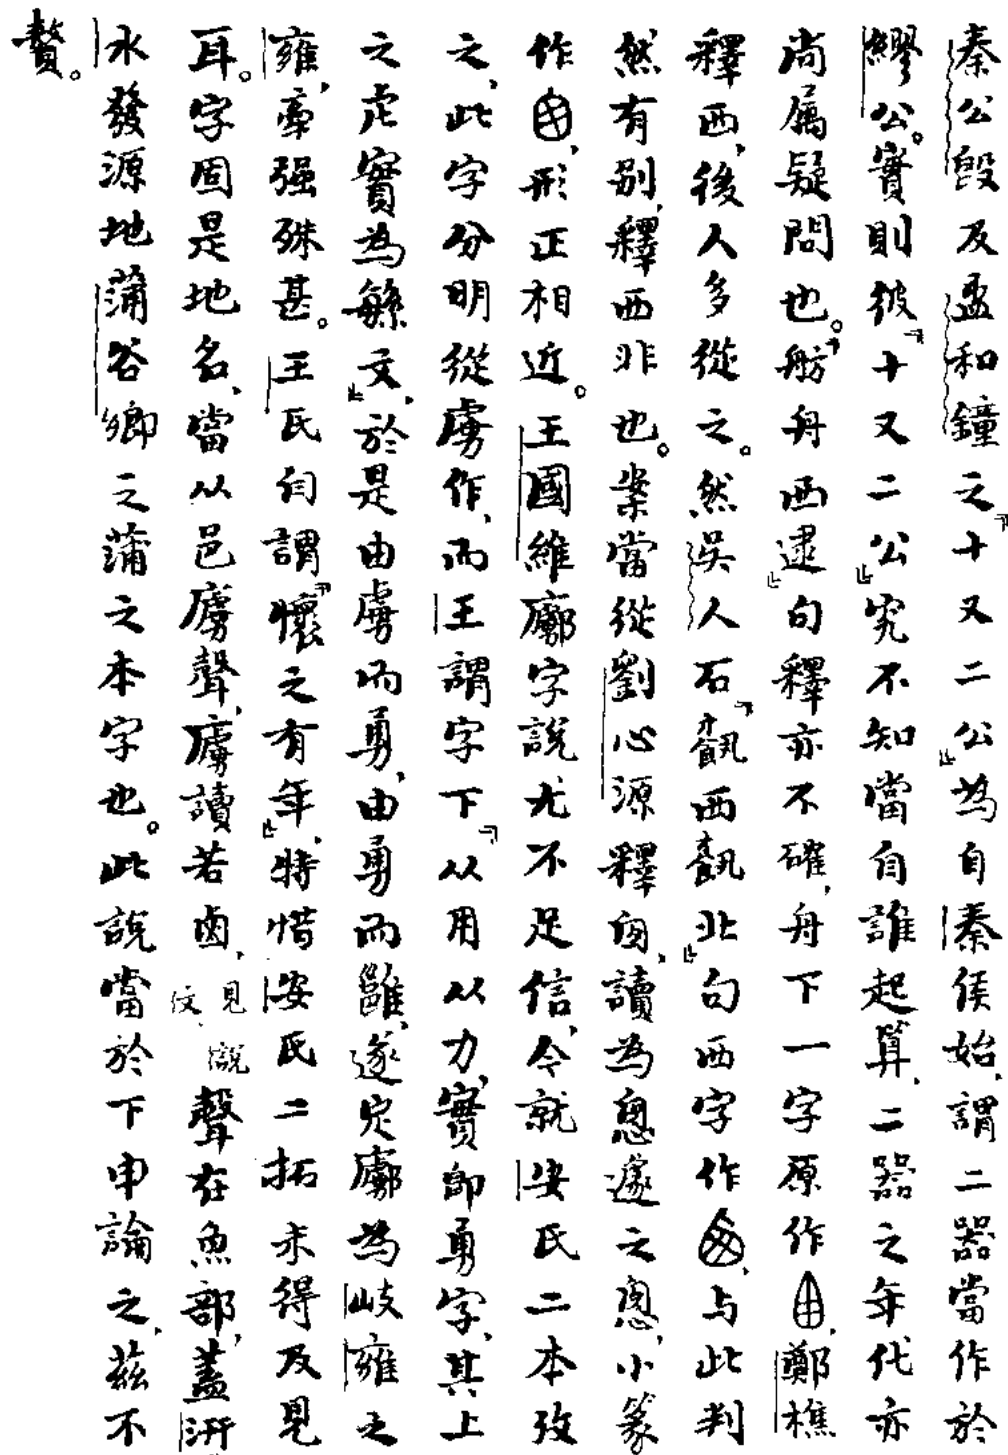 秦公𣪘及盄和鐘之「十又二公」為自秦侯始，謂二器當作於
繆公。實則彼「十又二公」究不知當自誰起算，二器之年代亦
尚屬疑問也。「舫舟西逮」句釋亦不確，舟下一字原作，鄭樵
釋西，後人多從之。然吳人石「西北」句西字作，与此判
然有别，釋西非也。案當從劉心源釋囪，讀為悤遽之悤，小篆
作，形正相近。王國維鄜字說尤不足信，今就安氏二本攷
之，此字分明從虜作，而王謂字下「从用从力，實即勇字，其上
之虍實為緐文」，於是由虜而勇，由勇而雝，遂定鄜為岐雍之
雍，牽强殊甚。王氏自謂「懷之有年」，特惜安氏二拓未得及見
耳。字固是地名，當从邑虜聲，虜讀若鹵，見說文，聲在魚部，蓋汧
水發源地蒲谷鄉之蒲之本字也。此說當於下申論之，茲不
贅。